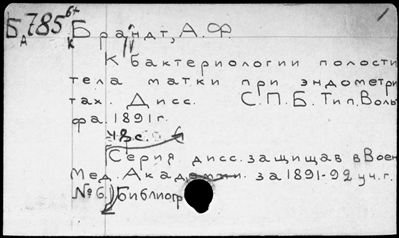 Б 785
Брандт, А. Ф.
К бактериологии полости
тела матки при эндометри
тах. Дисс. С.П.Б. Тип. Воль
фа. 1891 г.
48 с.
Серия дисс. защищав в Воен
Мед. Академии за 1891-92 уч. г.
№ 6. Библиогр